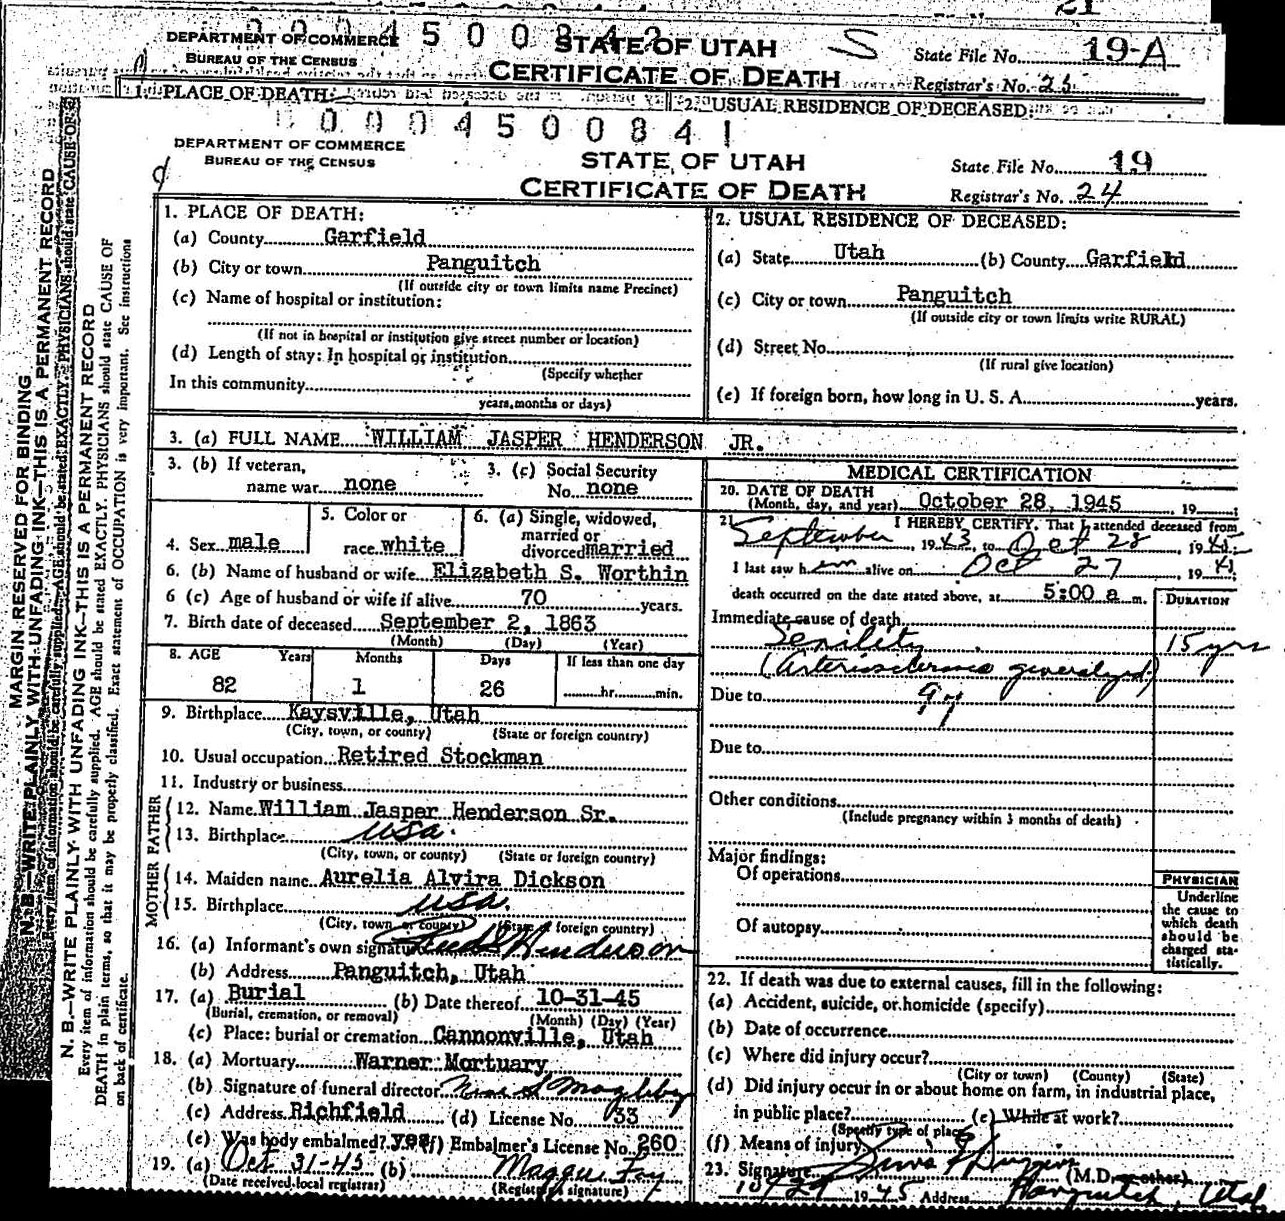 DEPARTMENT OF COMMERCE
BUREAU OF THE CENSUS
STATE OF UTAH
CERTIFICATE OF DEATH
State File No. 19-A
Registrar's No. 25
1. PLACE OF DEATH:
2. USUAL RESIDENCE OF DECEASED:
0004500841
DEPARTMENT OF COMMERCE
BUREAU OF THE CENSUS
STATE OF UTAH
CERTIFICATE OF DEATH
State File No. 19
Registrar's No. 24
MARGIN RESERVED FOR BINDING
N. B.—WRITE PLAINLY WITH UNFADING INK—THIS IS A PERMANENT RECORD
N. B.—WRITE PLAINLY WITH UNFADING INK—THIS IS A PERMANENT RECORD
Every item of information should be carefully supplied. AGE should be stated EXACTLY. PHYSICIANS should state CAUSE OF
DEATH in plain terms, so that it may be properly classified. Exact statement of OCCUPATION is very important. See instructions
on back of certificate.
1. PLACE OF DEATH:
(a) County Garfield
(b) City or town Panguitch
(If outside city or town limits name Precinct)
(c) Name of hospital or institution:
(If not in hospital or institution give street number or location)
(d) Length of stay: In hospital or institution
(Specify whether
In this community
years, months or days)
2. USUAL RESIDENCE OF DECEASED:
(a) State Utah (b) County Garfield
(c) City or town Panguitch
(If outside city or town limits write RURAL)
(d) Street No.
(If rural give location)
(e) If foreign born, how long in U. S. A. years.
3. (a) FULL NAME WILLIAM JASPER HENDERSON JR.
3. (b) If veteran,
name war none
3. (c) Social Security
No. none
4. Sex male
5. Color or
race white
6. (a) Single, widowed,
married or
divorced married
6. (b) Name of husband or wife Elizabeth S. Worthin
6 (c) Age of husband or wife if alive 70 years.
7. Birth date of deceased September 2, 1863
(Month) (Day) (Year)
8. AGE Years Months Days If less than one day
82 1 26 hr. min.
9. Birthplace Kaysville, Utah
(City, town, or county) (State or foreign country)
10. Usual occupation Retired Stockman
11. Industry or business
FATHER
12. Name William Jasper Henderson Sr.
13. Birthplace USA.
(City, town, or county) (State or foreign country)
MOTHER
14. Maiden name Aurelia Alvira Dickson
15. Birthplace USA.
(City, town or county) (State or foreign country)
16. (a) Informant's own signature Henderson
(b) Address Panguitch, Utah
17. (a) Burial (b) Date thereof 10-31-45
(Burial, cremation, or removal) (Month) (Day) (Year)
(c) Place: burial or cremation Cannonville, Utah
18. (a) Mortuary Warner Mortuary
(b) Signature of funeral director
(c) Address Richfield (d) License No. 33
(e) Was body embalmed? yes (f) Embalmer's License No. 260
19. (a) Oct 31-45 (b) Maggie Foy
(Date received local registrar) (Registrar's signature)
MEDICAL CERTIFICATION
20. DATE OF DEATH
(Month, day, and year) October 28, 1945, 19
21. I HEREBY CERTIFY, That I attended deceased from
September, 1943, to Oct 28 1945
I last saw him alive on Oct 27 19
death occurred on the date stated above, at 5:00 a m.
DURATION
Immediate cause of death
Senility 15 yrs
(Arteriosclerosis generalized)
Due to
Due to
Other conditions
(Include pregnancy within 3 months of death)
Major findings:
Of operations
Of autopsy
PHYSICIAN
Underline
the cause to
which death
should be
charged sta-
tistically.
22. If death was due to external causes, fill in the following:
(a) Accident, suicide, or homicide (specify)
(b) Date of occurrence
(c) Where did injury occur?
(City or town) (County) (State)
(d) Did injury occur in or about home on farm, in industrial place,
in public place? (e) While at work?
(Specify type of place)
(f) Means of injury
23. Signature (M.D. or other)
10/29 1945 Address Panguitch, Utah